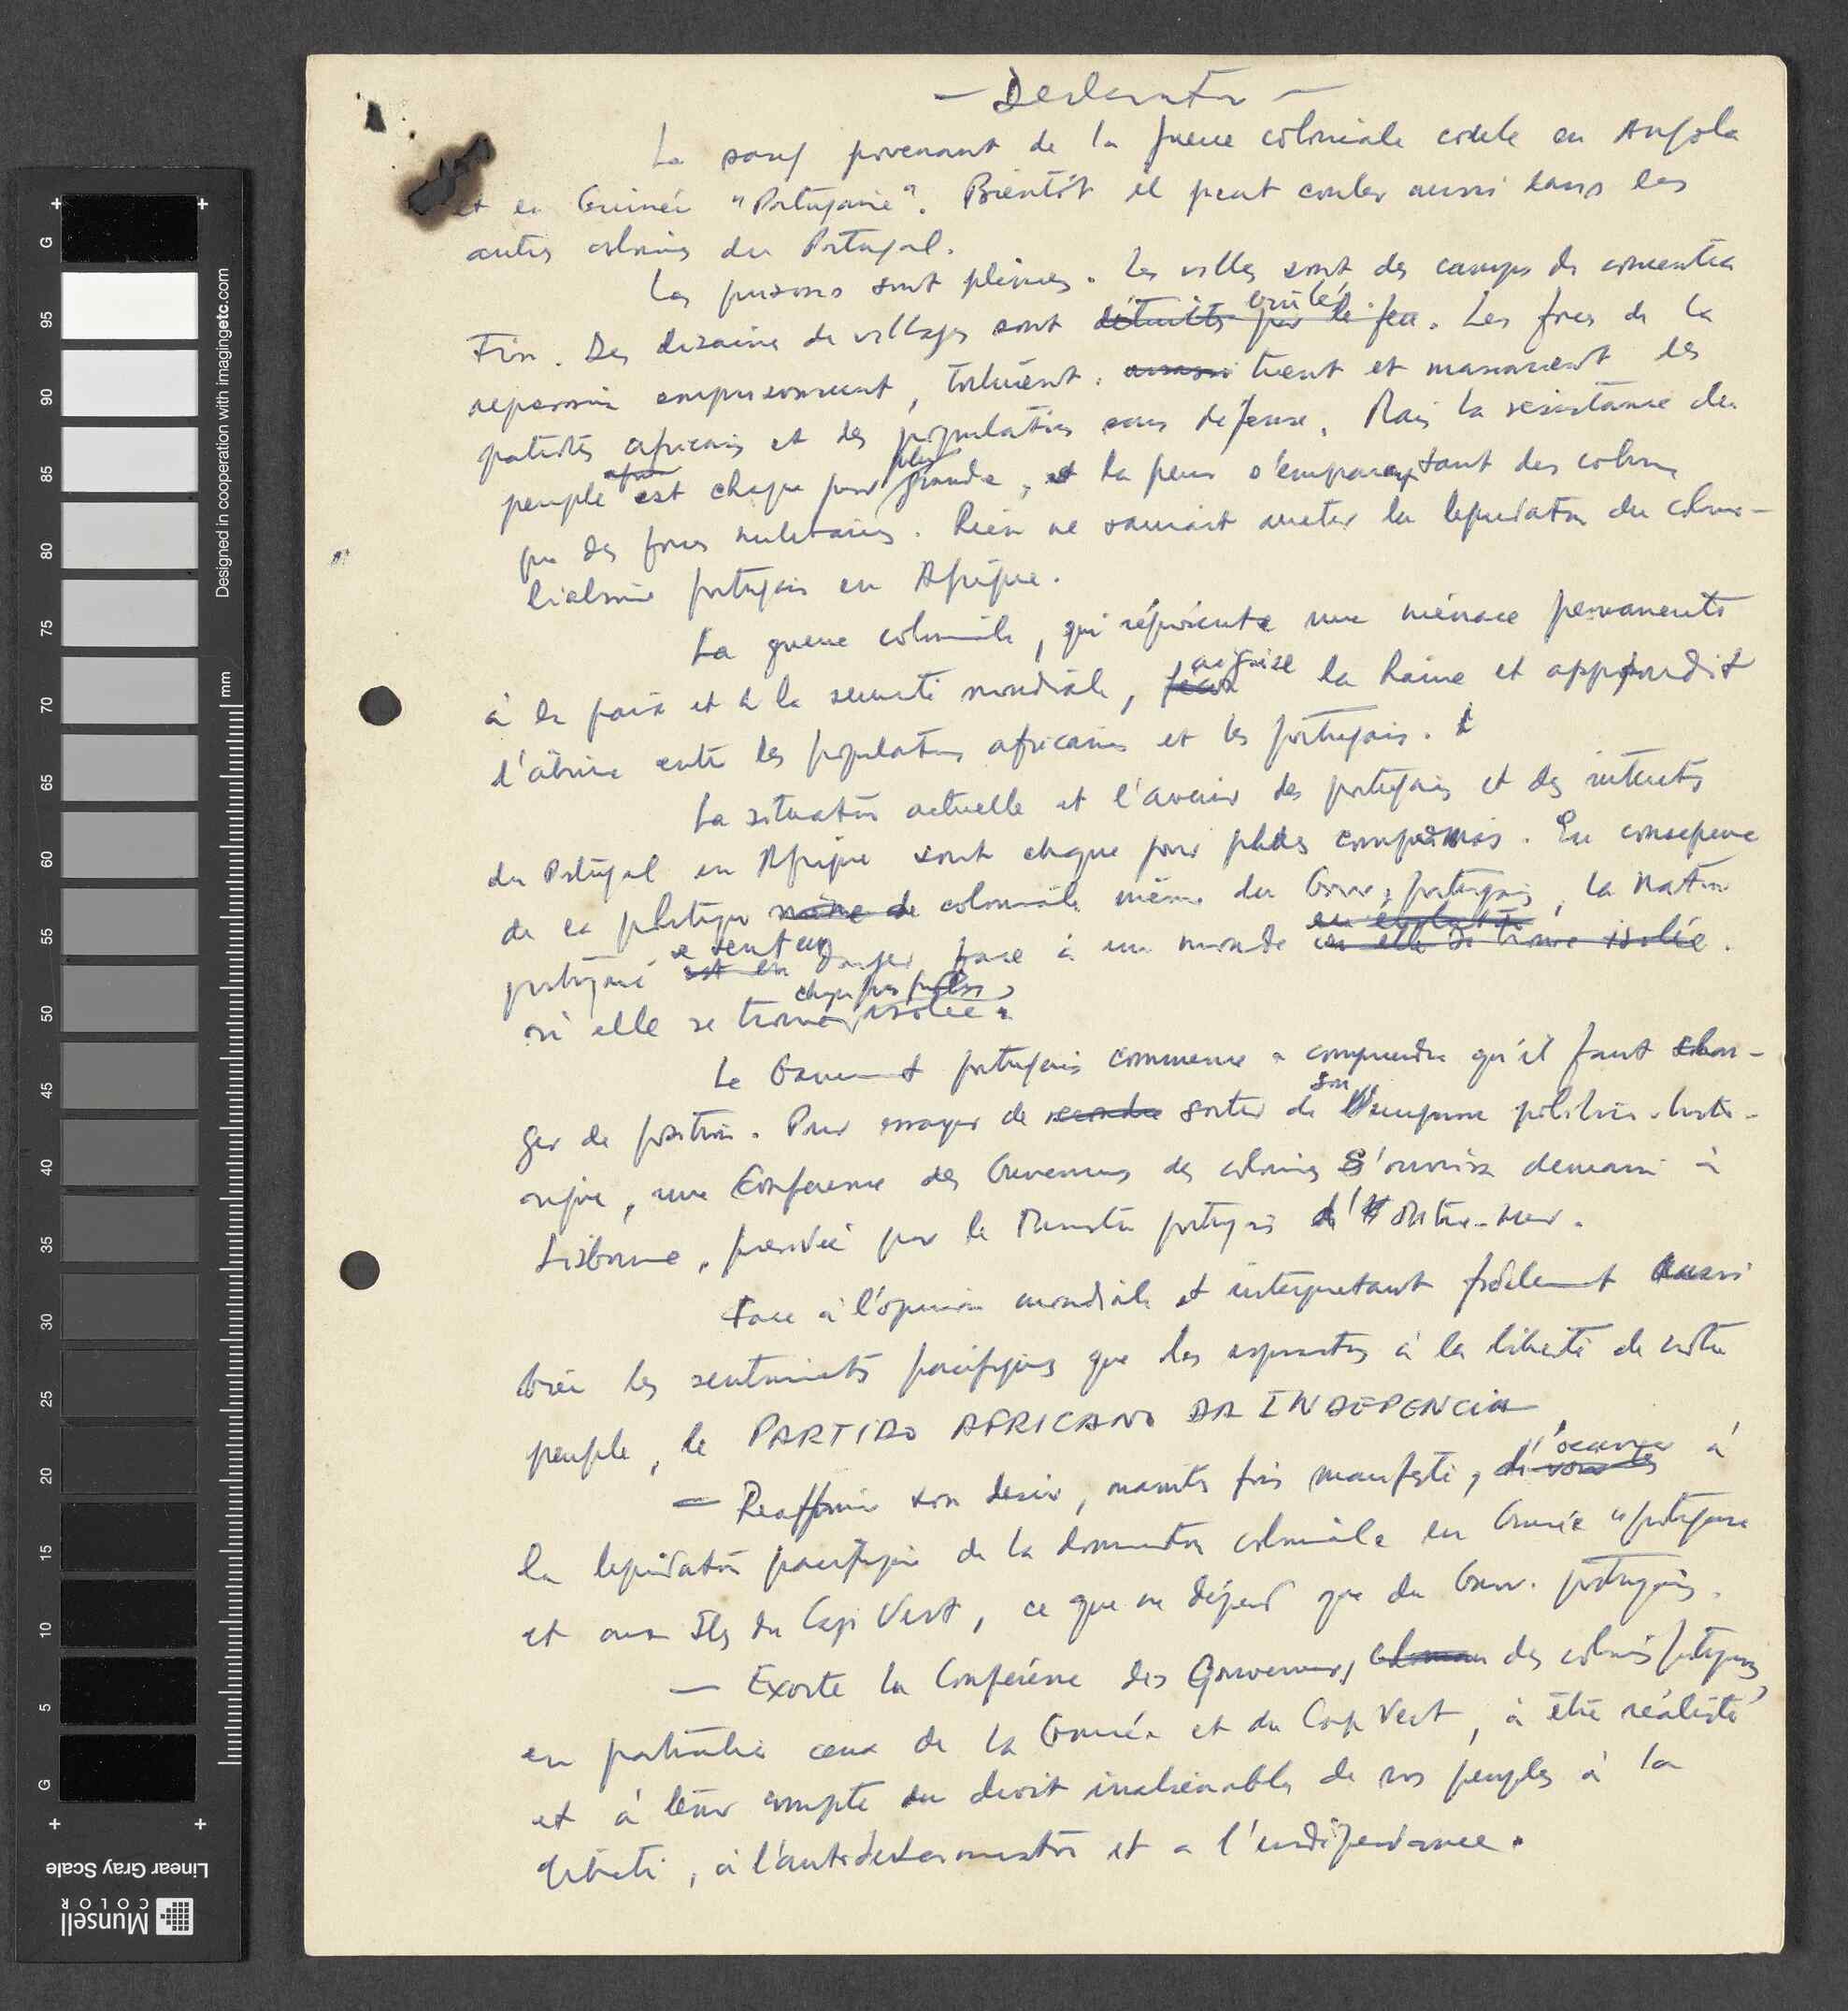 — Declaration —
Le sang provenant de la guerre coloniale coule en Angola
et en Guinée "Portugaise". Bientôt il peut couler aussi dans les
autres colonies du Portugal.
Les prisons sont pleines. Les villes sont des camps de concentra
tion. Des dizaines de villages sont brûlés. Les forces de la
repression emprisonnent, torturent, tuent et massacrent les
patriotes africains et des populations sans defense. Mais la resistance du
peuple est chaque jour plus grande, et la peur s'emparent tant des colons
que des forces militaires. Rien ne saurait arreter la liquidation du colon-
lialisme portugais en Afrique.
La guerre coloniale, qui représente une ménace permanente
à la paix et à la securité mondiale, aiguise la haine et approfondit
l'abîme entre les populations africaines et les portugais.
La situation actuelle et l'avenir des portugais et des interets
du Portugal en Afrique sont chaque jour plus compromis. En consequence
de la politique coloniale même du Gouv. portugais, la nation
portugaise se sent en danger face à un monde
où elle se trouve chaque jour plus isolée.
Le Gouvernement portugais commence a comprendre qu'il faut chan-
ger de position. Pour essayer de sortir de son impasse politico-
une Conference des Gouverneurs des colonies s'ouvrira demain à
Lisbonne, presidée par le Ministre portugais d'Outre-mer.
Face à l'opinion mondiale et interpretant fidèlement aussi
bien les sentiments pacifiques que les aspirations à la liberté de notre
peuple, le PARTIDO AFRICANO DA INDEPENCIA
— Reaffirme son desir, maintes fois manifesté, d'oeuvrer à
la liquidation pacifique de la domination coloniale en Guinée "portugaise
et aux Îles du Cap Vert, ce que ne dépend que du Gouv. portugais.
— Exorte la Conférence des Gouverneurs, des colonies portugaises,
en particulier ceux de la Guinée et du Cap Vert, à être réaliste
et à tenir compte du droit inaliénables de nos peuples à la
liberté, à l'autodetermination et a l'indépendance.
Designed in cooperation with imagingetc.com
mm
G
95
90
85
80
75
70
65
60
55
50
45
40
35
30
25
20
15
10
5
G
Linear Gray Scale
Munsell
COLOR